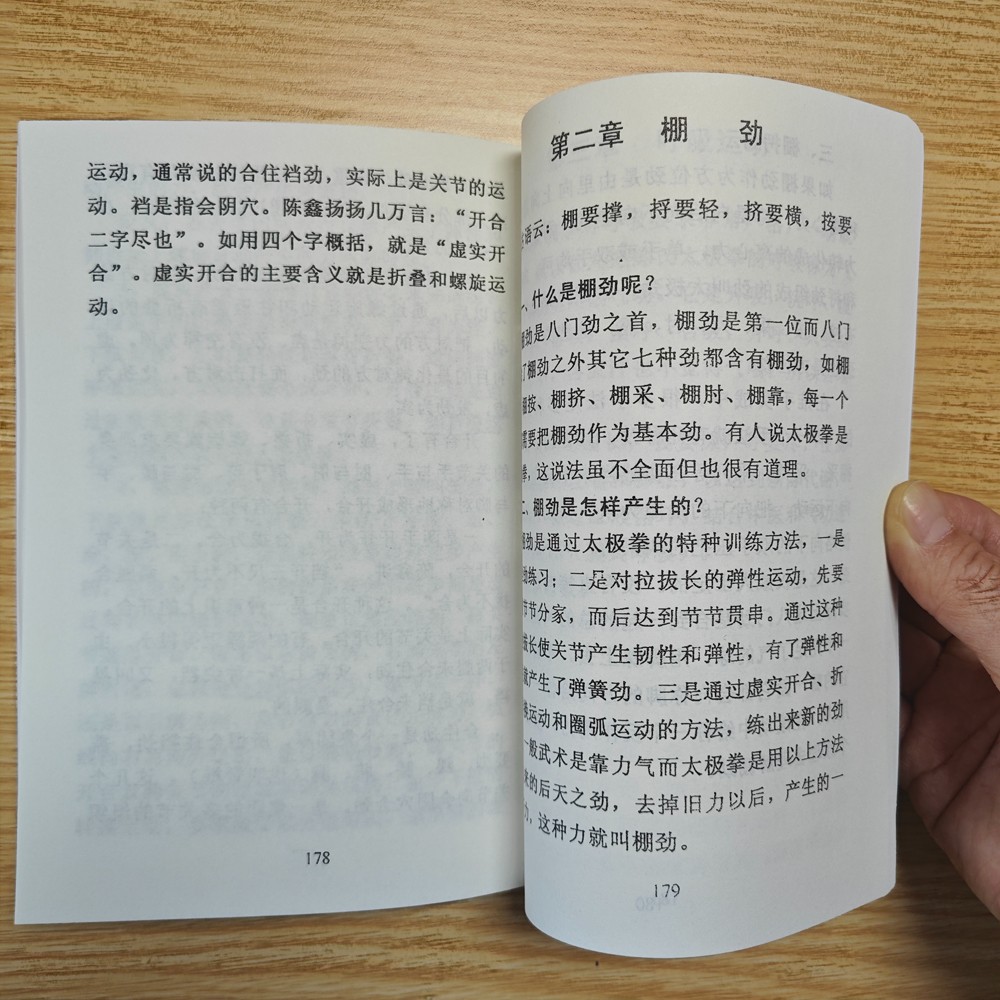 运动，通常说的合住裆劲，实际上是关节的运
动。裆是指会阴穴。陈鑫扬扬几万言：“开合
二字尽也”。如用四个字概括，就是“虚实开
合”。虚实开合的主要含义就是折叠和螺旋运
动。
178
第二章 棚 劲
语云：棚要撑，捋要轻，挤要横，按要
一、什么是棚劲呢？
劲是八门劲之首，棚劲是第一位而八门
了棚劲之外其它七种劲都含有棚劲，如棚
棚按、棚挤、棚采、棚肘、棚靠，每一个
需要把棚劲作为基本劲。有人说太极拳是
拳，这说法虽不全面但也很有道理。
二、棚劲是怎样产生的？
劲是通过太极拳的特种训练方法，一是
练习；二是对拉拔长的弹性运动，先要
节节分家，而后达到节节贯串。通过这种
拔长使关节产生韧性和弹性，有了弹性和
就产生了弹簧劲。三是通过虚实开合、折
运动和圈弧运动的方法，练出来新的劲
一般武术是靠力气而太极拳是用以上方法
来的后天之劲，去掉旧力以后，产生的一
力，这种力就叫棚劲。
179